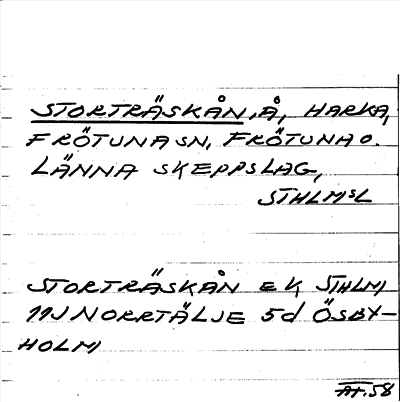 STORTRÄSKÅN, Å, HARKA,
FRÖTUNA SN, FRÖTUNA O.
LÄNNA SKEPPSLAG,
STHLMSL
STORTRÄSKÅN EK STHLM
11J NORRTÄLJE 5d ÖSBY-
HOLM
AT. 58